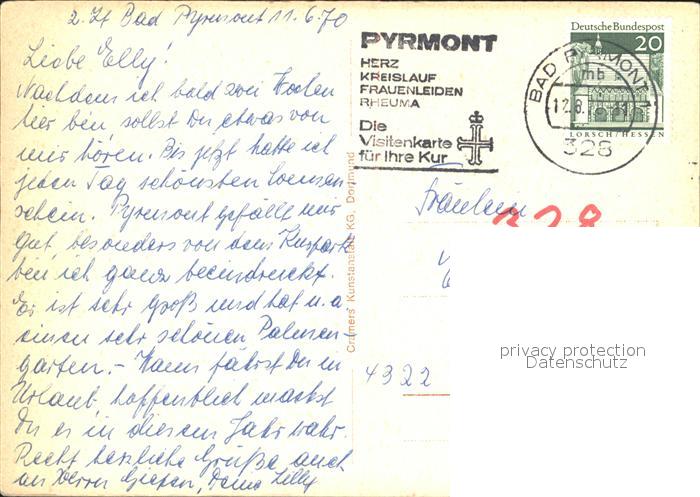 z. Zt Bad Pyrmont 11.6.70
Liebe Elly!
Nachdem ich bald zwei Wochen
hier bin, sollst Du etwas von
mir hören. Bis jetzt hatte ich
jeden Tag schönsten Sonnen
schein. Pyrmont gefällt mir
gut, besonders von dem Kurpark
bin ich ganz beeindruckt.
Er ist sehr groß und hat u. a
einen sehr schönen Palmen-
garten. - Wann fährst Du in
Urlaub, hoffentlich machst
Du es in diesem Jahr wahr.
Recht herzliche Grüße auch
an Herrn Deine Lilly
Cramers Kunstanstalt KG, Dortmund
PYRMONT
HERZ
KREISLAUF
FRAUENLEIDEN
RHEUMA
Die
Visitenkarte
für Ihre Kur
BAD PYRMONT 1
mb
328
Deutsche Bundespost
20
LORSCH/HESSEN
Fräulein
328
4322
privacy protection
Datenschutz